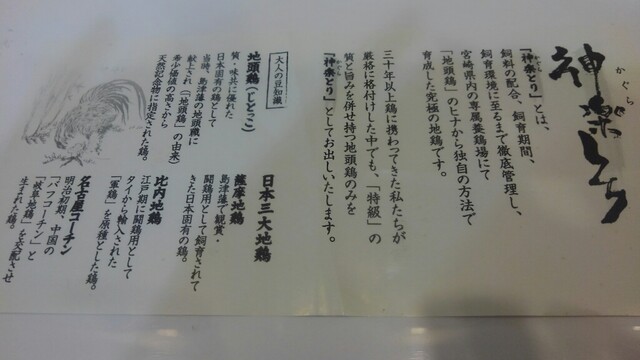 かぐら
神楽とり
『神楽とり』とは、
飼料の配合、飼育期間、
飼育環境に至るまで徹底管理し、
宮崎県内の専属養鶏場にて
「地頭鶏」のヒナから独自の方法で
育成した究極の地鶏です。
三十年以上鶏に携わってきた私たちが
厳格に格付けした中でも、「特級」の
質と旨みを併せ持つ地頭鶏のみを
『神楽とり』としてお出しいたします。
大人の豆知識
地頭鶏(じとっこ)
質・味共に優れた
日本固有の鶏として
当時、島津藩の地頭職に
献上され(「地頭鶏」の由来)
希少価値の高さから
天然記念物に指定された鶏。
日本三大地鶏
薩摩地鶏
島津藩で観賞・
闘鶏用として飼育されて
きた日本固有の鶏。
比内地鶏
江戸期に闘鶏用として
タイから輸入された
「軍鶏」を原種とした鶏。
名古屋コーチン
明治初期、中国の
「バフコーチン」と
「岐阜地鶏」を交配させ
生まれた鶏。